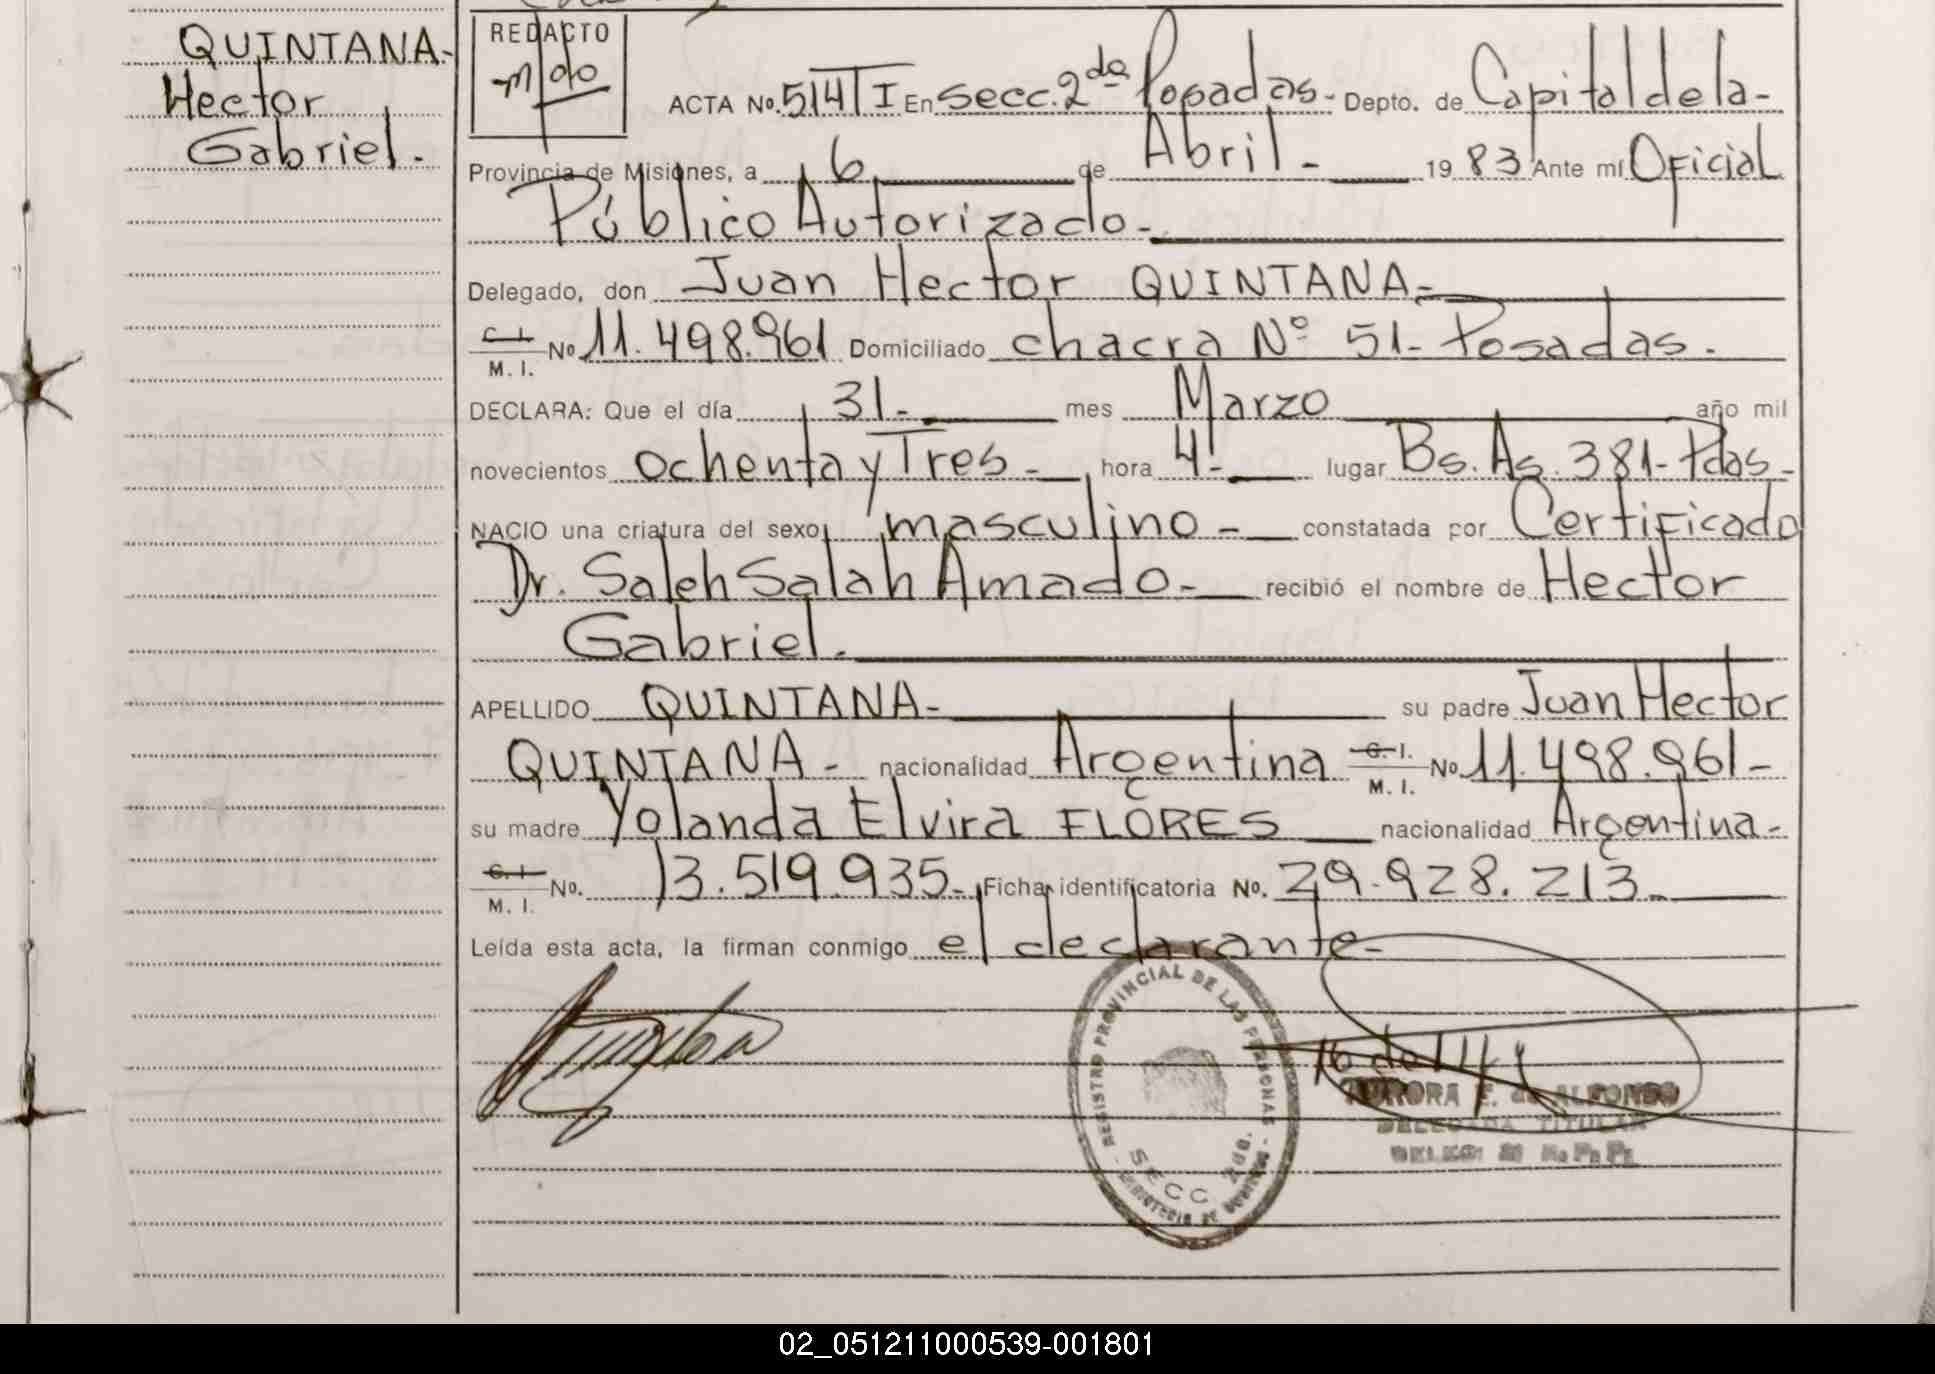 QUINTANA-
Hector
Gabriel.
REDACTO
ACTA No. 514 TI En Secc. 2da Posadas- Depto. de Capital de la-
Provincia de Misiones, a 6 de Abril- 1983 Ante mí Oficial
Público Autorizado-
Delegado, don Juan Hector QUINTANA-
C. I.
M. I. No 11.498.961 Domiciliado chacra Nº 51- Posadas.
DECLARA: Que el día 31- mes Marzo año mil
novecientos ochenta y Tres- hora 4- lugar Bs. As. 381- Pdas-
NACIO una criatura del sexo masculino- constatada por Certificado
Dr. Saleh Salah Amado- recibió el nombre de Hector
Gabriel.
APELLIDO QUINTANA- su padre Juan Hector
QUINTANA- nacionalidad Argentina C. I.
M. I. No 11.498.961-
su madre Yolanda Elvira FLORES nacionalidad Argentina-
C. I.
M. I. No. 13.519.935- Ficha identificatoria No. 29.928.213-
Leída esta acta, la firman conmigo el declarante-
REGISTRO PROVINCIAL DE LAS PERSONAS
SECC. 2da.
MINISTERIO DE GOBIERNO
AURORA F. de ALFONSO
DELEGADA TITULAR
02_051211000539-001801